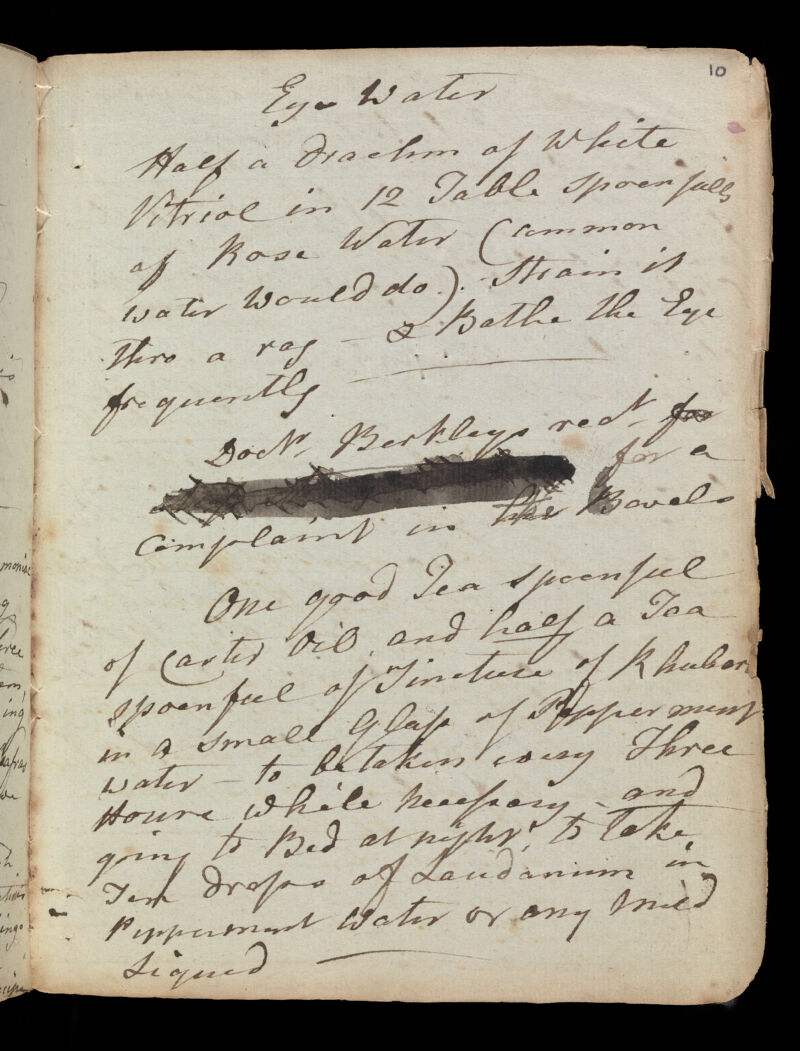 10
Eye Water
Half a drachm of White
Vitriol in 12 Table spoonfulls
of Rose Water (common
water would do). Strain it
thro a rag — & Bathe the Eye
frequently
Doctr Berkleys rect for
for a
complaint in the Bowels
One good Tea spoonful
of Castor Oil and half a Tea
spoonful of Tincture of Rhubarb
in a small Glass of Pepperment
water — to be taken every Three
Hours while necessary — and
going to Bed at night, to take
Ten drops of Laudanum in
Pepperment Water or any Mild
Liquid